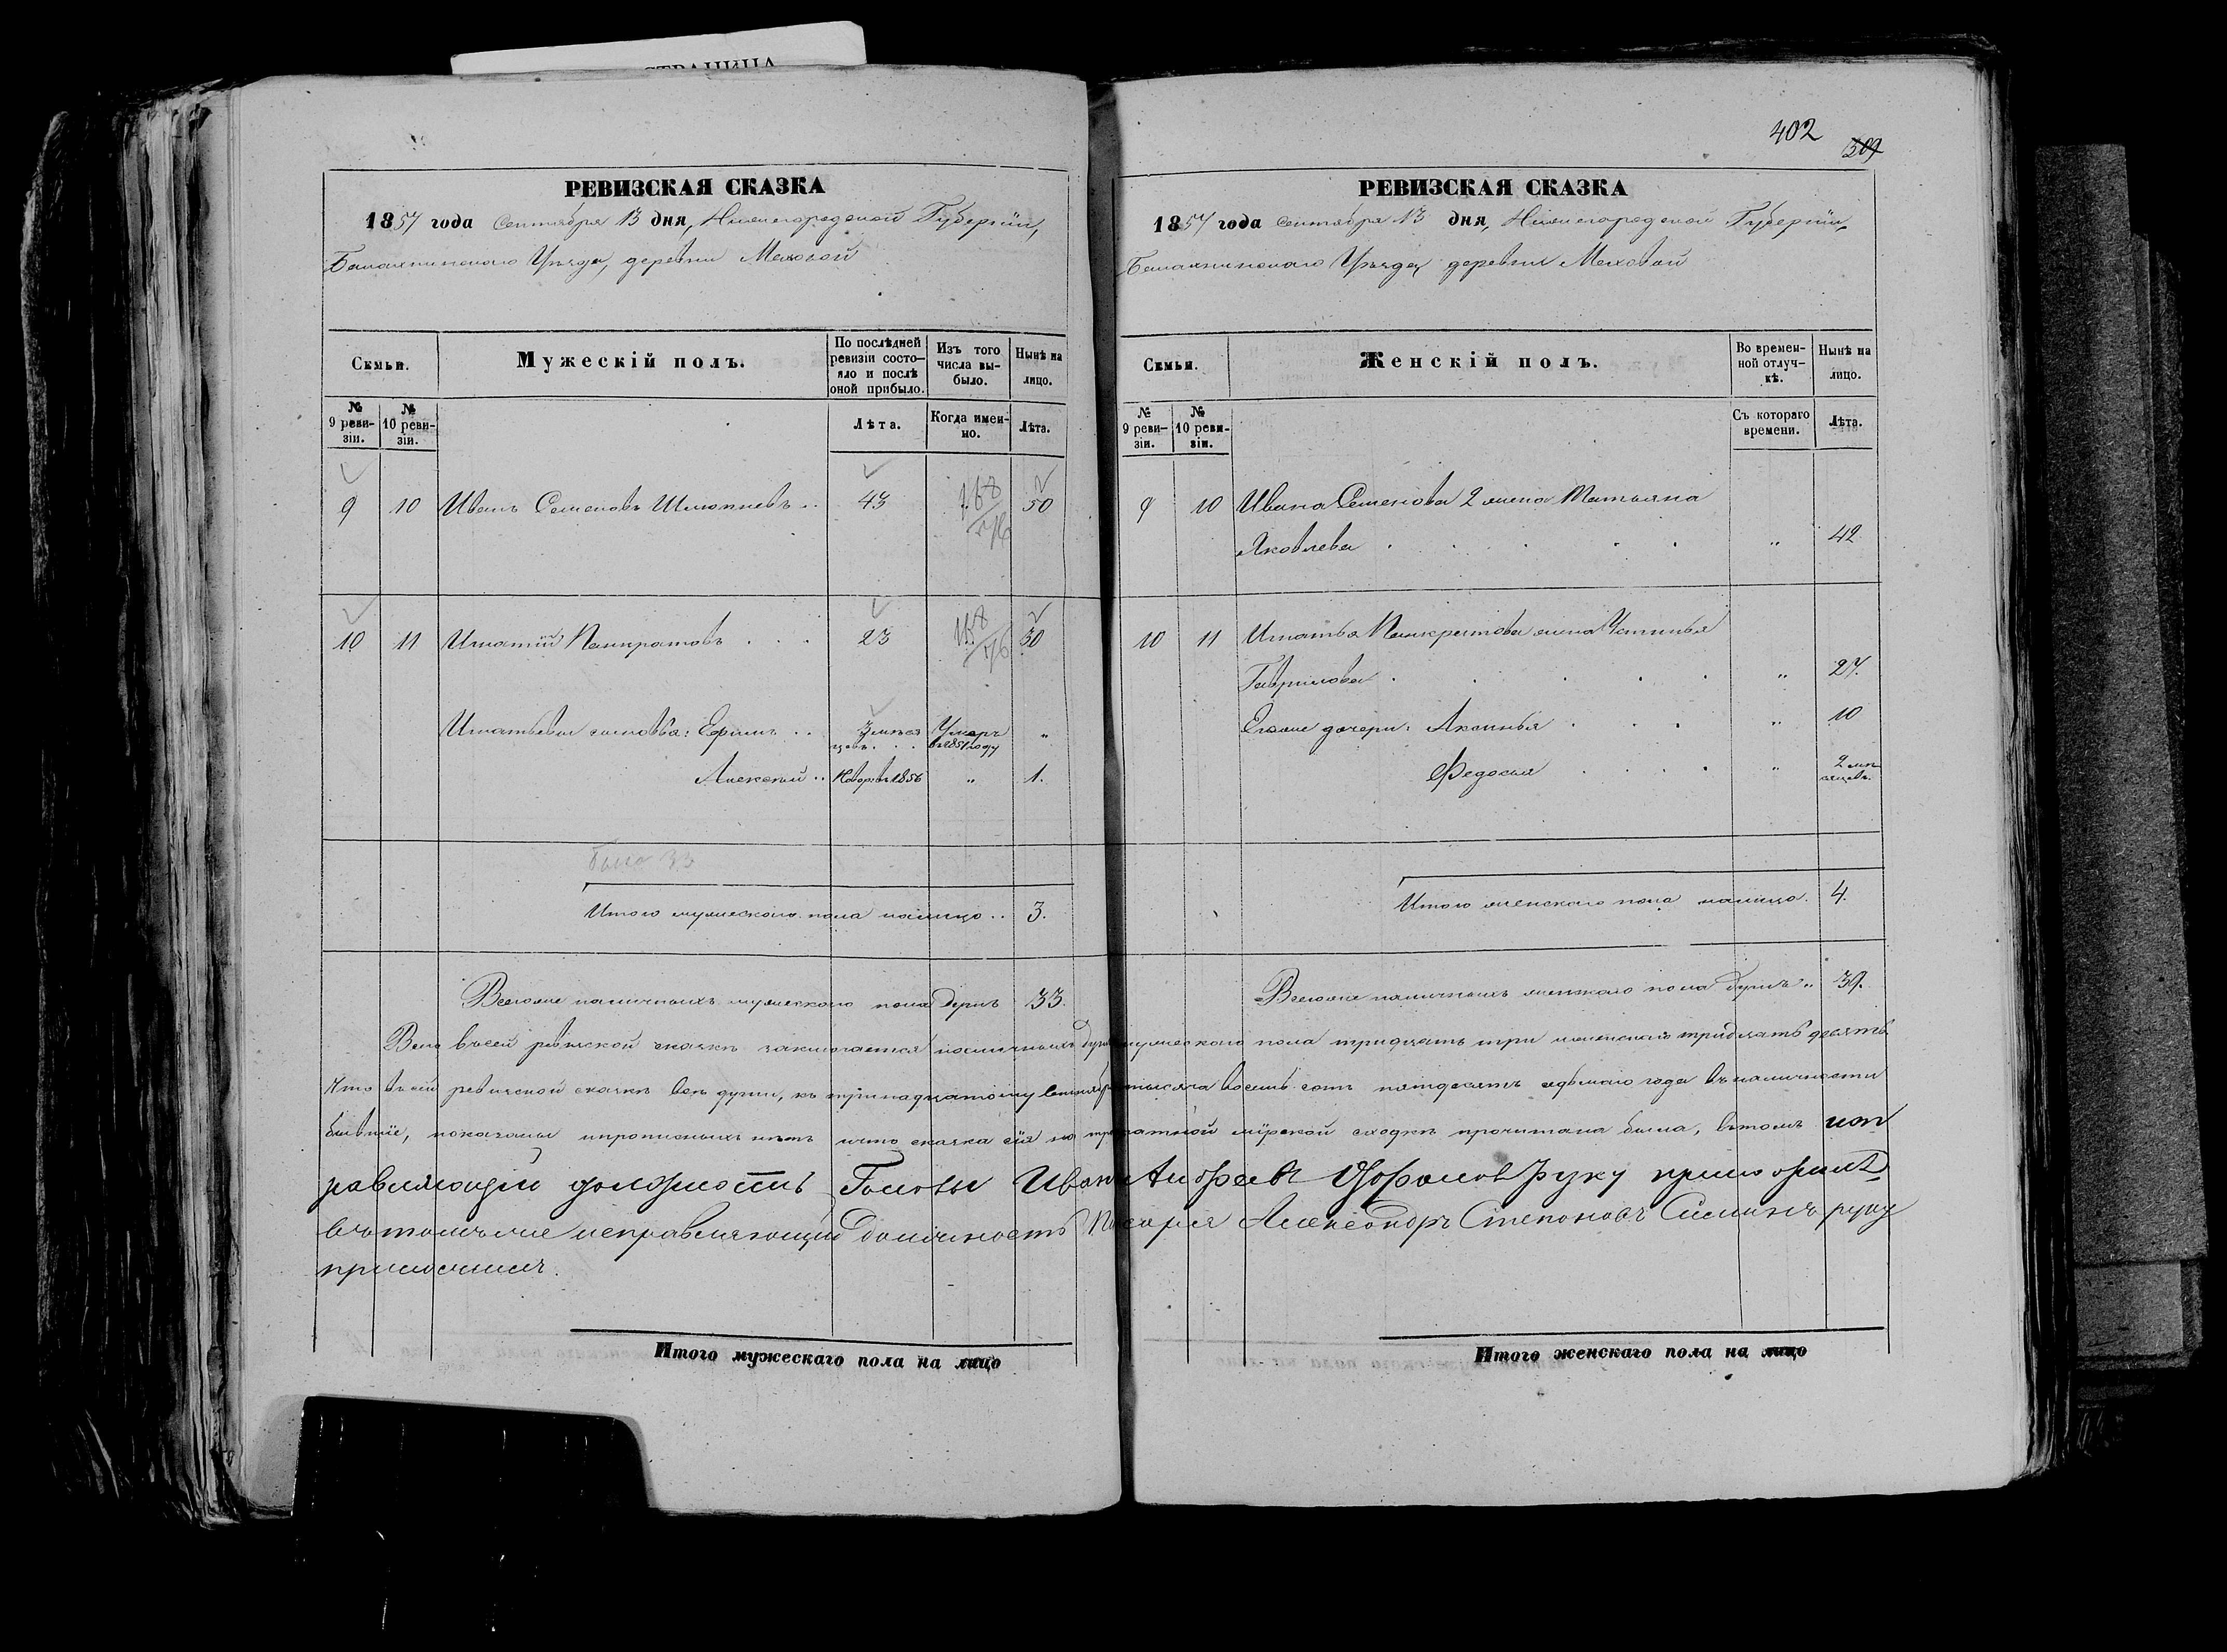 СТРАНИЦА
РЕВИЗСКАЯ СКАЗКА
1857 года Сентября 13 дня, Нижегородской Губернии,
Балахнинскаго Уѣзда, деревни Меховой
Семьи.
Мужескій полъ.
По послѣдней ревизіи состо-
яло и послѣ оной прибыло.
Изъ того числа вы-
было.
Нынѣ на лицо.
№ 9 реви-
зіи.
№ 10 реви-
зіи.
Лѣта.
Когда имен-
но.
Лѣта.
9 10 Иванъ Семеновъ .. 43 50
10 11 Игнатій Панкратовъ . . . 23 30
Игнатьевы сыновья: Ефимъ .. Умеръ въ 1851 году "
Алексѣй .. Новорж 1856 " 1.
было 33
Итого мужескаго пола налицо .. 3.
Всегоже наличныхъ мужескаго пола душъ 33.
402
309
РЕВИЗСКАЯ СКАЗКА
1857 года Сентября 13 дня, Нижегородской Губернии,
Балахнинскаго Уѣзда деревни Меховой
Семьи.
Женскій полъ.
Во времен-
ной отлуч-
кѣ.
Нынѣ на лицо.
№ 9 реви-
зіи.
№ 10 реви-
зіи.
Съ котораго времени.
Лѣта.
9 10 Ивана Семенова 2 жена Татьяна
Яковлева . . . . . " 42
10 11 Игнатья Панкратова жена Устинья
Гаврилова . . . . . " 27.
Егоже дочери: Аксинья . . . " 10
Федосья . . . . " 2 мѣ-
сяцевъ.
Итого женскаго пола налицо. 4.
Всегоже наличныхъ женскаго пола душъ " 39.
Всего въсей ревизской сказкѣ заключается наличныхъ душъ мужескаго пола тридцать три женскаго тридцать девять
Что въсей ревизской сказкѣ всѣ души, къ тринадцатому Сентября тысяча восемь сотъ пятдесятъ седьмаго года въналичности
бывшіе, показаны ипрописныхъ нѣтъ ичто сказка сія на мірской сходкѣ прочитана была, вътомъ исп
равляющій должность Головы Иванъ Андреевъ руку приложилъ
вътомъже исправляющій Должность Писаря Александръ Степановъ руку
приложилъ.
Итого мужескаго пола на лицо
Итого женскаго пола на лицо